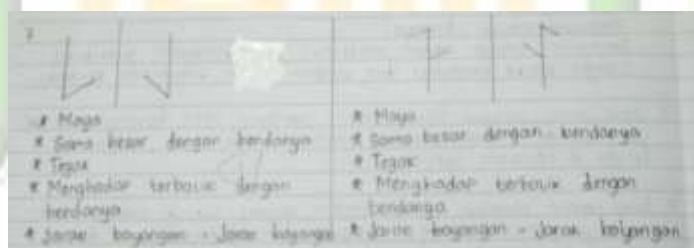 * Maya
* Sama besar dengan bendanya
* Tegak
* Menghadap terbalik dengan
bendanya
* Jarak bayangan = Jarak bayangan
* Maya
* Sama besar dengan bendanya
* Tegak
* Menghadap terbalik dengan
bendanya
* Jarak bayangan = Jarak bayangan